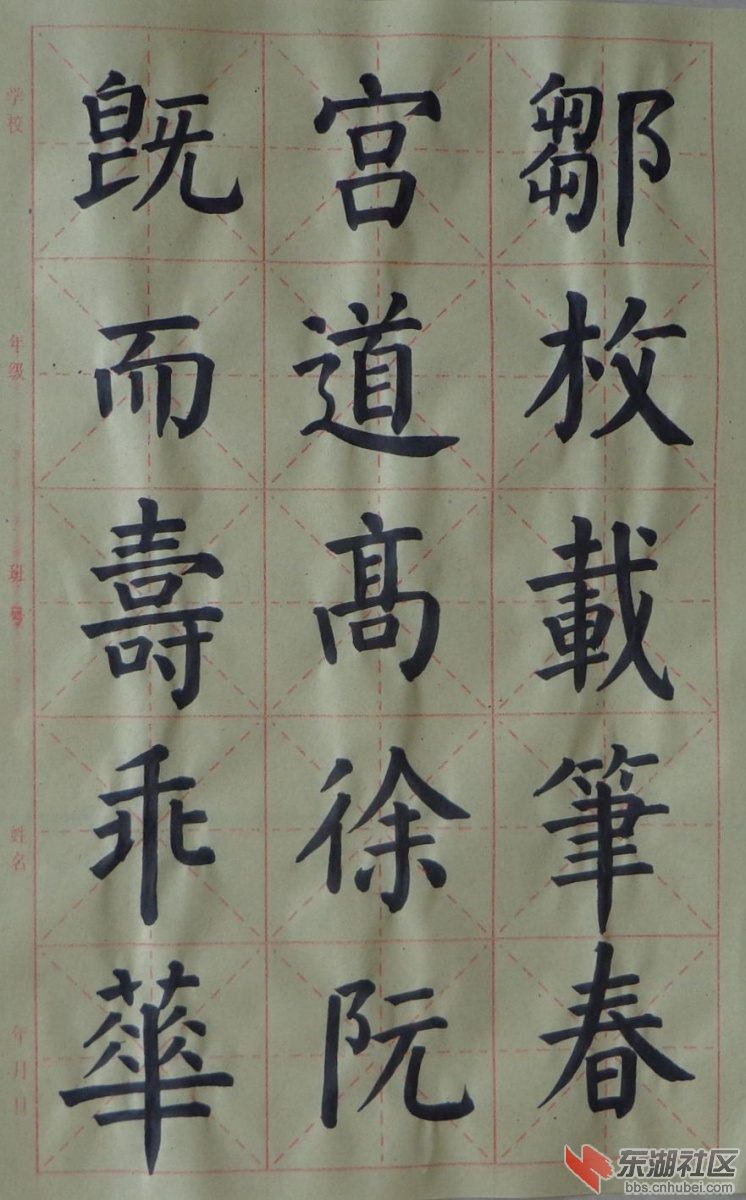 鄒枚載筆春
宮道高徐阮
既而壽乖華
学校
年级
班号
姓名
年月日
东湖社区
bbs.cnhubei.com